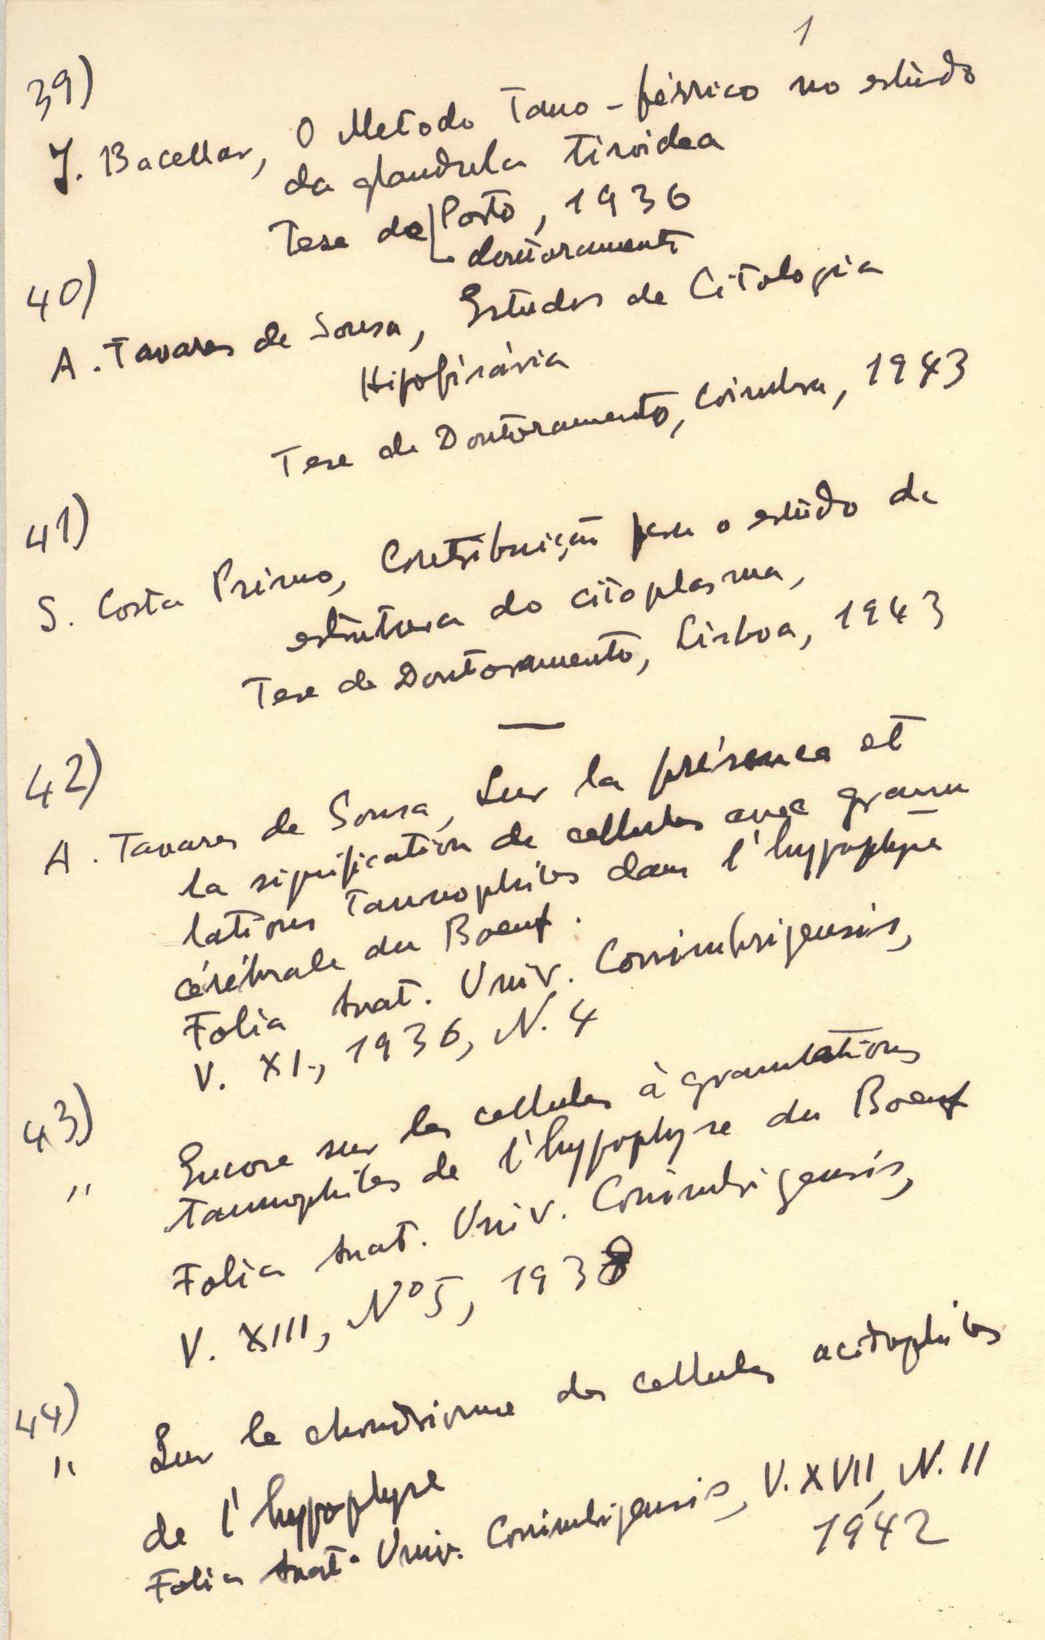 1
39)
J. Bacellar, O Metodo Tano-férrico no estudo
da glandula tiroidea
Tese de Porto, 1936
doutoramento
40)
A. Tavares de Sousa, Estudos de Citologia
Hipofisária
Tese de Doutoramento, Coimbra, 1943
41)
S. Costa Primo, Contribuição para o estudo da
estrutura do citoplasma,
Tese de Doutoramento, Lisboa, 1943
42)
A. Tavares de Sousa, Sur la présence et
la signification de cellules avec granu
lations tannophiles dans l'hypophyse
cérébrale du Boeuf.
Folia Anat. Univ. Conimbrigensis,
V. XI., 1936, N. 4
43)
" Encore sur les cellules à granulations
tannophiles de l'hypophyse du Boeuf
Folia Anat. Univ. Conimbrigensis,
V. XIII, Nº 5, 1938
44)
" Sur le chondriome des cellules acidophiles
de l'hypophyse
Folia Anat. Univ. Conimbrigensis, V. XVII, N. 11
1942